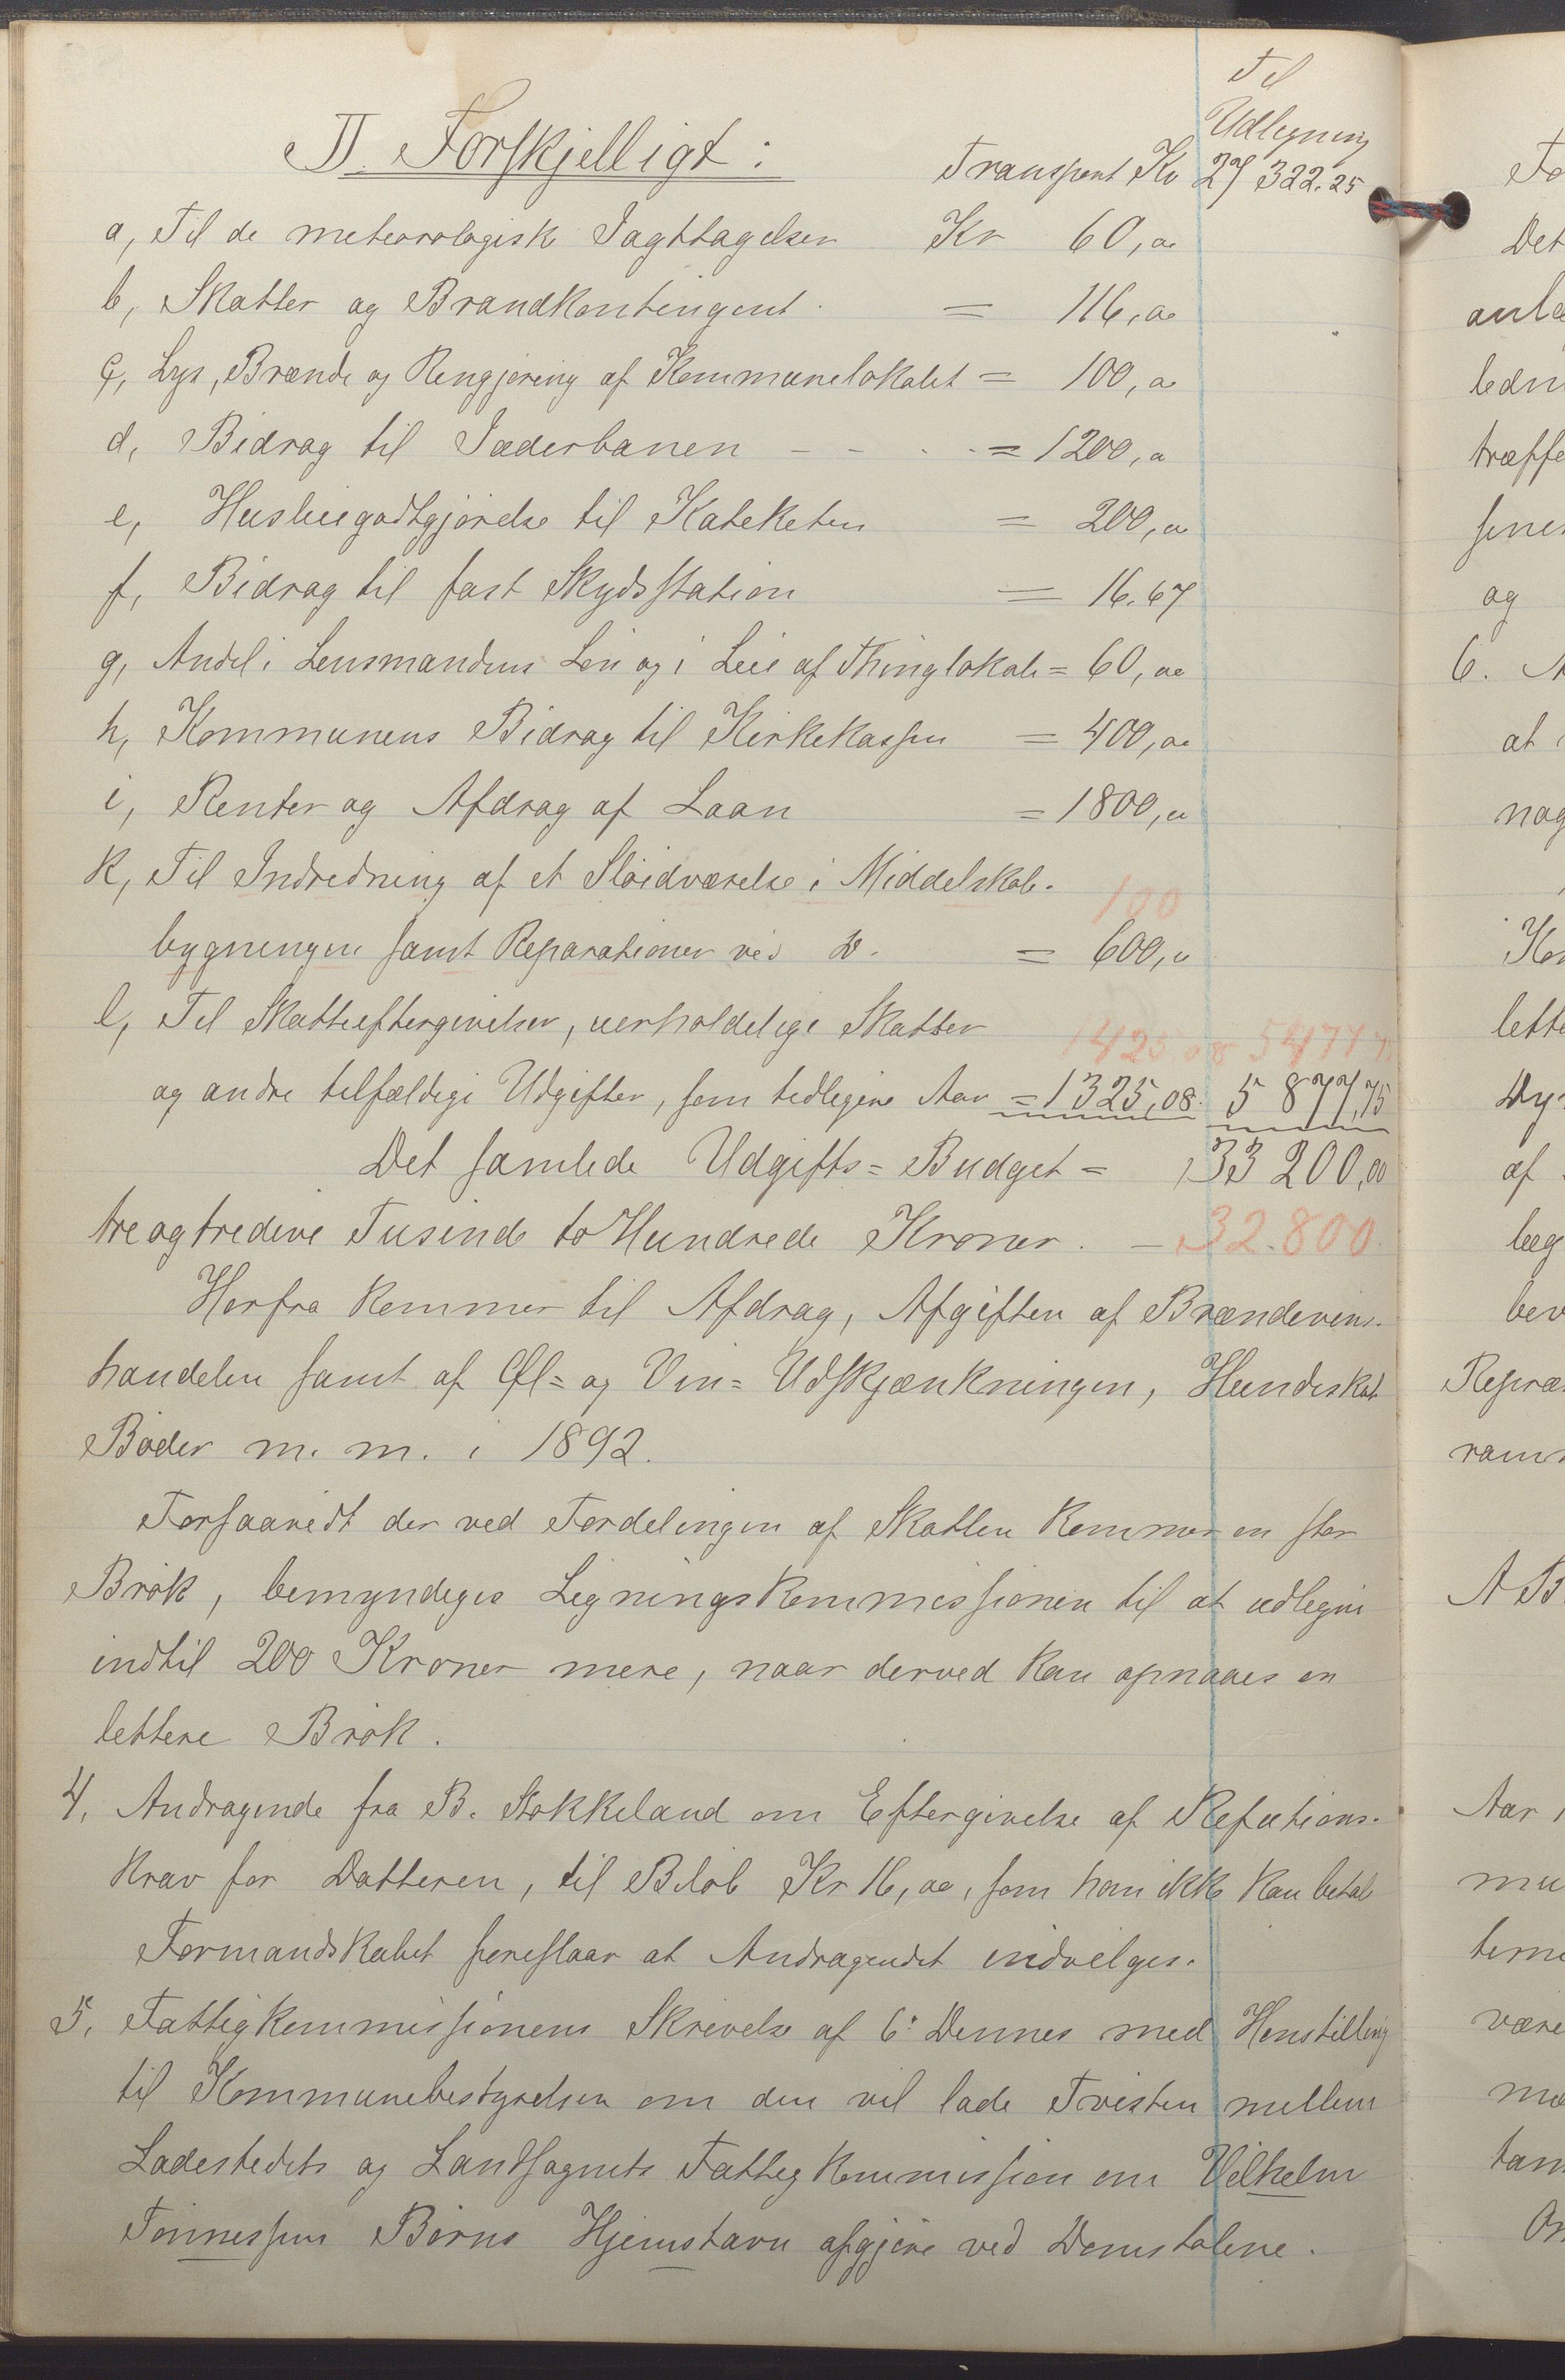 Til
Udligning
II. Forskjelligt:
Transport Kr 27 322.25
a, Til de meteorologisk Iagttagelser Kr 60,00
b, Skatter og Brandkontingent = 116,00
c, Lys, Brænde og Rengjøring af Kommunelokalet = 100,00
d, Bidrag til Jæderbanen - - . . = 1200,00
e, Husleiegodtgjørelse til Kateketen = 200,00
f, Bidrag til fast Skydsstation = 16.67
g, Andel i Lensmandens Løn og i Leie af Thinglokale = 60,00
h, Kommunens Bidrag til Kirkekassen = 400,00
i, Renter og Afdrag af Laan = 1800,00
k, Til Indredning af et Sløidværelse i Middelskole-
100
bygningen samt Reparationer ved D. = 600,00
l, Til Skatteeftergivelser, uerholdelige Skatter
1425 08 5477 75
og andre tilfældige Udgifter, som tidligere Aar = 1325,08. 5 877,75
Det samlede Udgifts= Budget = 33 200,00
treogtredive Tusinde to Hundrede Kroner. — 32.800
Herfra kommer til Afdrag, Afgiften af Brændevins-
handelen samt af Øl= og Vin= Udskjænkningen, Hundeskat
Bøder m. m. i 1892.
Forsaavidt der ved Fordelingen af Skatten kommer en stor
Brøk, bemyndiges Ligningskommissionen til at udligne
indtil 200 Kroner mere, naar derved kan opnaaes en
lettere Brøk.
4, Andragende fra B. Stokkeland om Eftergivelse af Refutions-
krav for Datteren, til Beløb Kr 16,00, som han ikke kan betale
Formandskabet foreslaar at Andragendet indvilges.
5, Fattigkommissionens Skrivelse af 6' Dennes med Henstilling
til Kommunebestyrelsen om den vil lade Tvisten mellem
Ladestedets og Landsognets Fattigkommission om Vilhelm
Tønnessens Børns Hjemstavn afgjøre ved Domstolene.